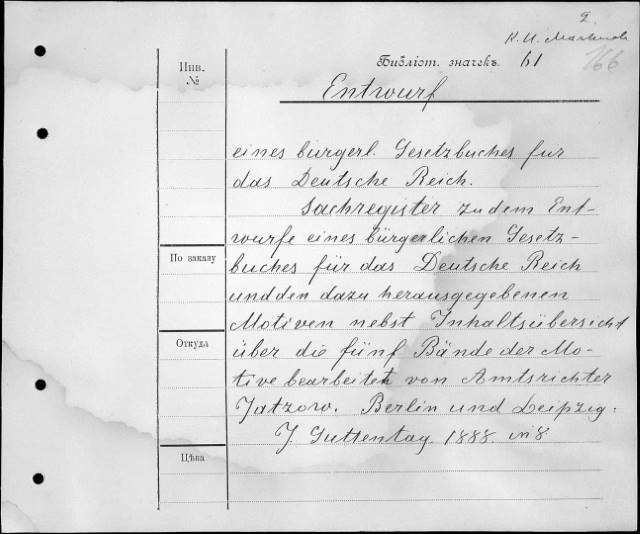 2.
К. И.
166
Инв.
№
Библіот. значекъ.
Entwurf
eines bürgerl. Gesetzbuches fur
das Deutsche Reich.
Sachregister zu dem Ent-
wurfe eines bürgerlichen Gesetz-
По заказу
buches für das Deutsche Reich
und den dazu herausgegebenen
Motiven nebst Inhaltsübersicht
Откуда
über die fünf Bände der Mo-
tive bearbeitet von Amtsrichter
Jatzow. Berlin und Leipzig:
J. Guttentag 1888. in 8
Цѣна